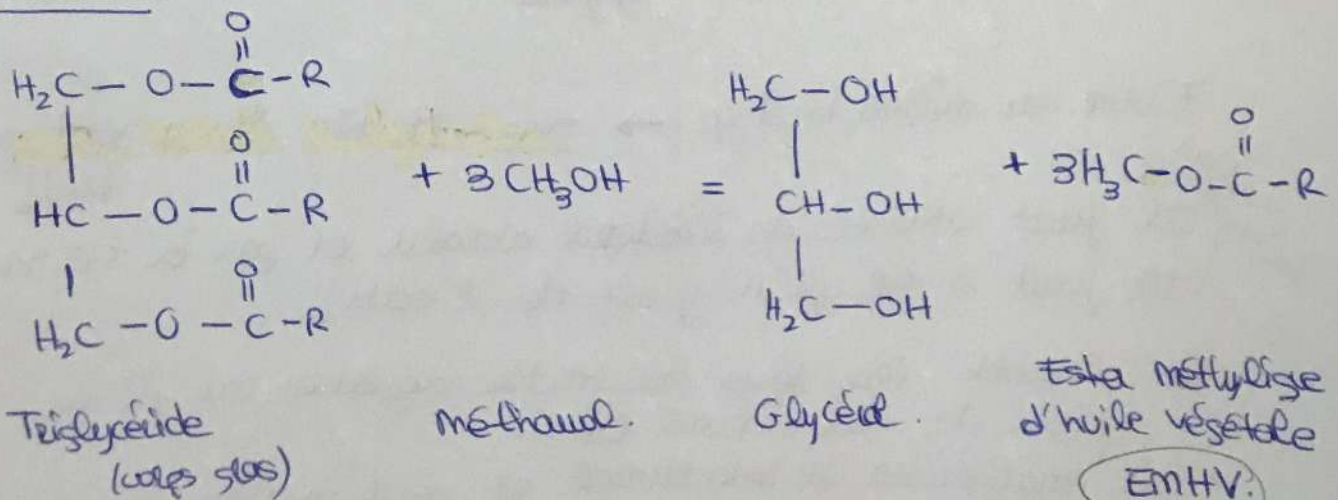 O
||
H₂C — O — C — R
|
O
||
HC — O — C — R + 3 CH₃OH = H₂C — OH
|
CH — OH
|
H₂C — OH
O
||
+ 3H₃C — O — C — R
|
O
||
H₂C — O — C — R
Triglycéride
(corps gras)
méthanol.
Glycérol.
Ester méthylique
d'huile végétale
EMHV.